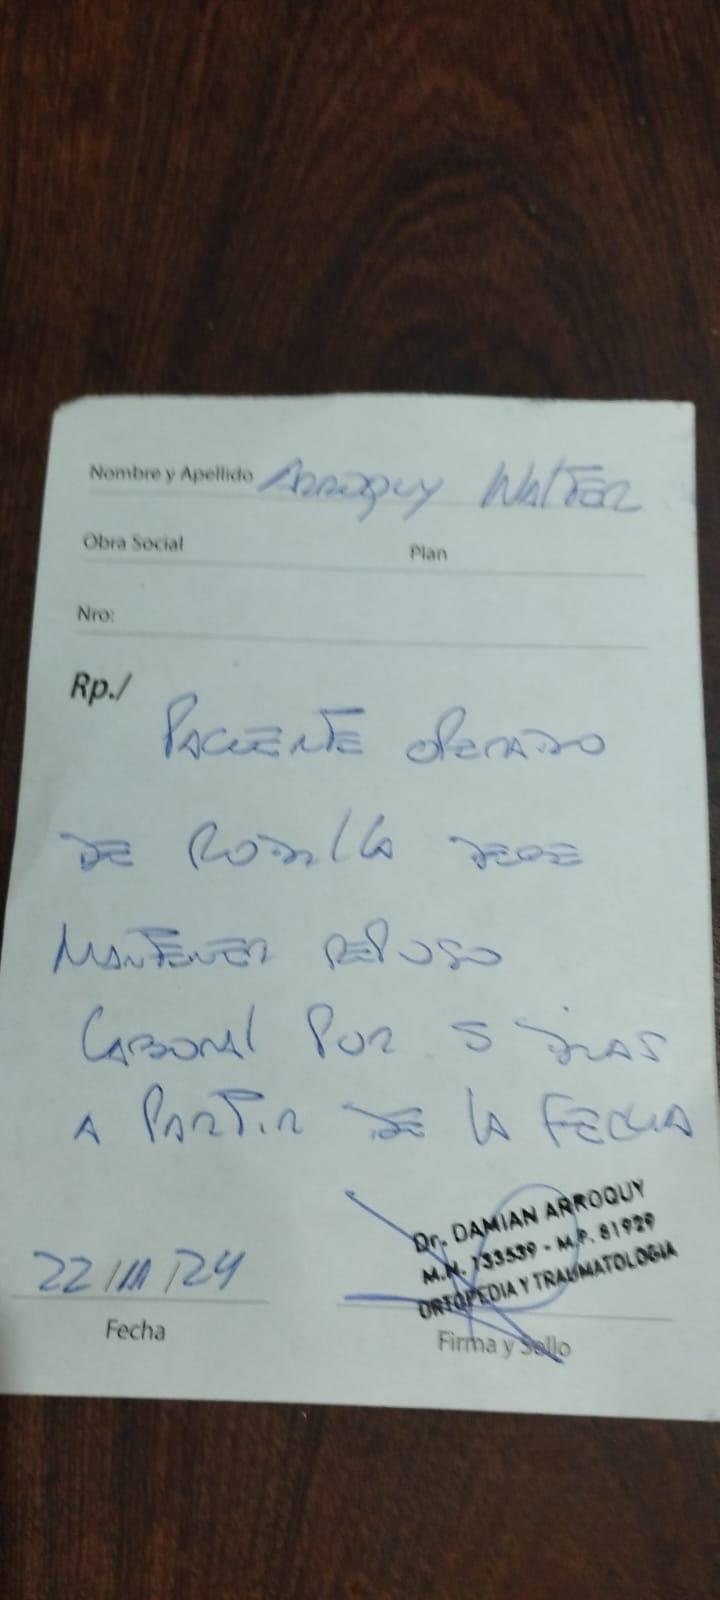 Nombre y Apellido Arroquy Walter
Obra Social Plan
Nro:
Rp./
PACIENTE OPERADO
DE RODILLA DEBE
MANTENER REPOSO
LABORAL POR 5 DIAS
A PARTIR DE LA FECHA
22/III/24
Fecha
Dr. DAMIAN ARROQUY
M.N. 133539 - M.P. 81929
ORTOPEDIA Y TRAUMATOLOGIA
Firma y Sello